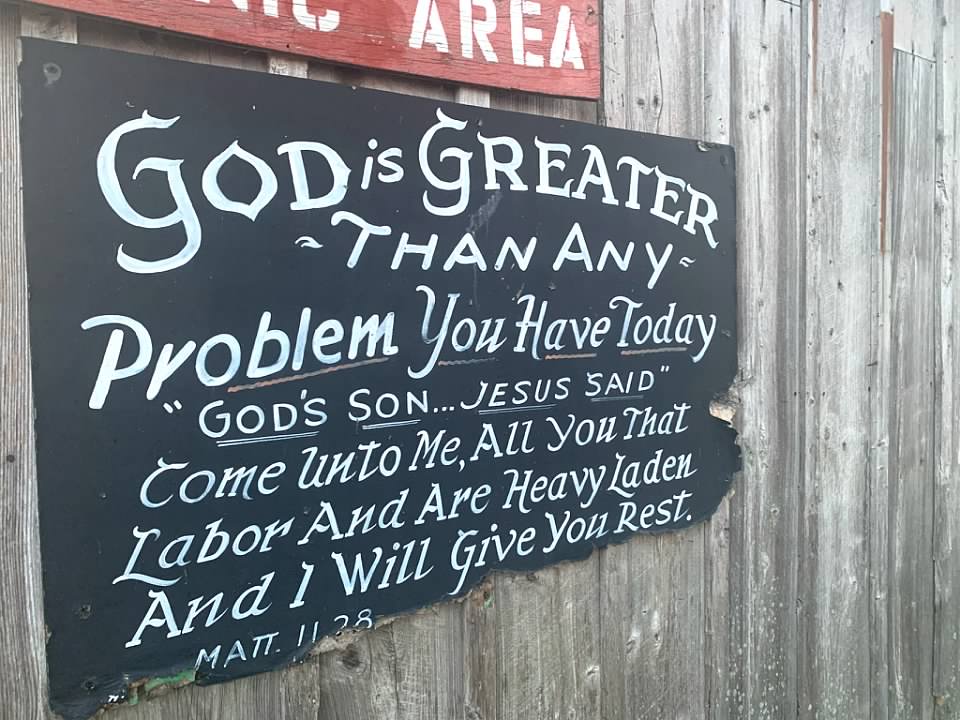 AREA
GOD is GREATER
~ THAN ANY ~
Problem You Have Today
"GOD'S SON... JESUS SAID"
Come Unto Me, All You That
Labor And Are Heavy Laden
And I Will Give You Rest.
MATT. 11 28